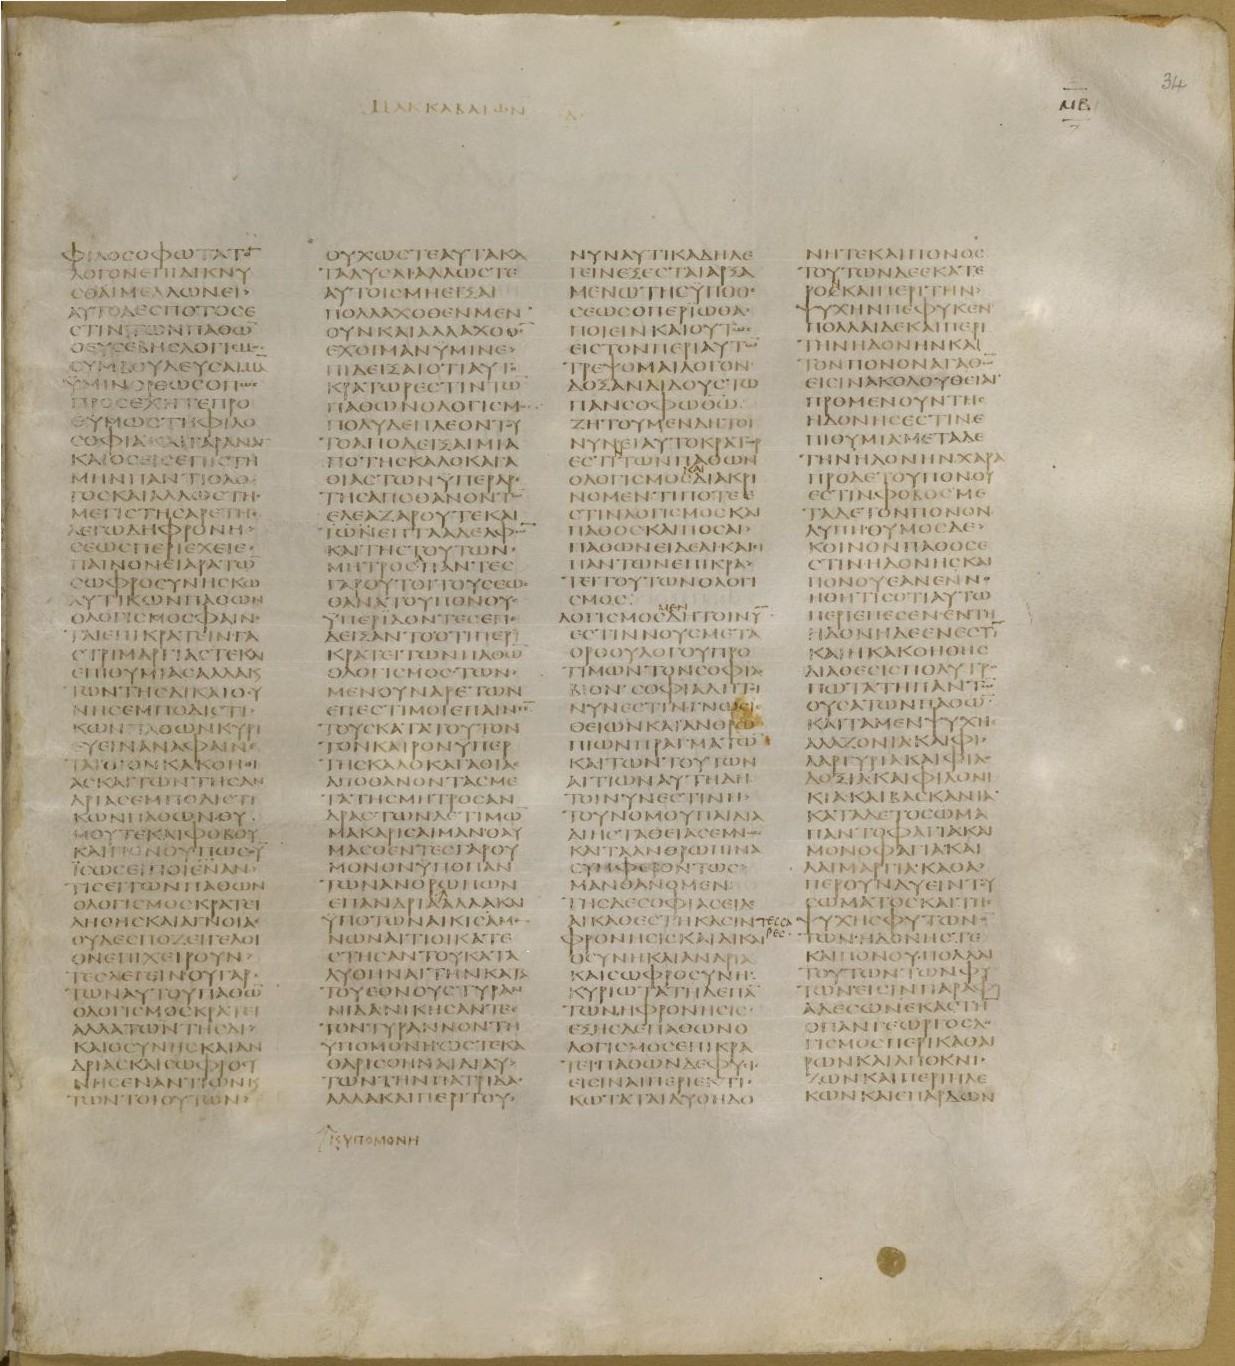 ΜΑΚΚΑΒΑΙΩΝ Δ
ΜΒ
34
ΦΙΛΟΣΟΦΩΤΑΤΟ
ΛΟΓΟΝΕΠΙΔΙΚΝΥ
ΣΘΑΙΜΕΛΛΩΝΕΙ
ΑΥΤΟΔΕΣΠΟΤΟΣΕ
ΣΤΙΝΤΩΝΠΑΘΩ
ΟΕΥΣΕΒΗΣΛΟΓΙΣΜ
ΣΥΜΒΟΥΛΕΥΣΑΙΜΙΑ
ΥΜΙΝΟΡΘΩΣΟΠΩΣ
ΠΡΟΣΕΧΗΤΕΠΡΟ
ΘΥΜΩΣΤΗΦΙΛΟ
ΣΟΦΙΑΚΑΙΓΑΡΑΝΑΓ
ΚΑΙΟΣΕΙΣΕΠΙΣΤΗ
ΜΗΝΠΑΝΤΙΟΛΟ
ΓΟΣΚΑΙΑΛΛΩΣΤΗ
ΜΕΓΙΣΤΗΣΑΡΕΤΗ
ΛΕΓΩΔΗΦΡΟΝΗ
ΣΕΩΣΠΕΡΙΕΧΕΙΕ
ΠΑΙΝΟΝΕΙΑΡΑΤΩ
ΣΩΦΡΟΣΥΝΗΣΚΩ
ΛΥΤΙΚΩΝΠΑΘΩΝ
ΟΛΟΓΙΣΜΟΣΦΑΙΝΕ
ΤΑΙΕΠΙΚΡΑΤΕΙΝΓΑ
ΣΤΡΙΜΑΡΓΙΑΣΤΕΚΑΙ
ΕΠΙΘΥΜΙΑΣΑΛΛΑΚΑΙ
ΤΩΝΤΗΣΔΙΚΑΙΟΣΥ
ΝΗΣΕΜΠΟΔΙΣΤΙ
ΚΩΝΠΑΘΩΝΚΥΡΙ
ΕΥΕΙΝΑΝΑΦΑΙΝΕ
ΤΑΙΟΙΟΝΚΑΚΟΗΘΙ
ΑΣΚΑΙΤΩΝΤΗΣΑΝ
ΔΡΙΑΣΕΜΠΟΔΙΣΤΙ
ΚΩΝΠΑΘΩΝΘΥ
ΜΟΥΤΕΚΑΙΦΟΒΟΥ
ΚΑΙΠΟΝΟΥΠΩΣΟΥ
ΙΣΩΣΕΙΠΟΙΕΝΑΝ
ΤΙΣΕΙΤΩΝΠΑΘΩΝ
ΟΛΟΓΙΣΜΟΣΚΡΑΤΕΙ
ΛΗΘΗΣΚΑΙΑΓΝΟΙΑΣ
ΟΥΔΕΣΠΟΖΕΙΓΕΛΟΙ
ΟΝΕΠΙΧΕΙΡΟΥΝ
ΤΕΣΛΕΓΕΙΝΟΥΓΑΡ
ΤΩΝΑΥΤΟΥΠΑΘΩ
ΟΛΟΓΙΣΜΟΣΚΡΑΤΕΙ
ΑΛΛΑΤΩΝΤΗΣΔΙ
ΚΑΙΟΣΥΝΗΣΚΑΙΑΝ
ΔΡΙΑΣΚΑΙΣΩΦΡΟΣΥ
ΝΗΣΕΝΑΝΤΙΩΝΚΑΙ
ΤΩΝΤΟΙΟΥΤΩΝ
ΟΥΧΩΣΤΕΑΥΤΑΚΑ
ΤΑΛΥΣΑΙΑΛΛΩΣΤΕ
ΑΥΤΟΙΣΜΗΕΙΞΑΙ
ΠΟΛΛΑΧΟΘΕΝΜΕΝ
ΟΥΝΚΑΙΑΛΛΑΧΟΘΕ
ΕΧΟΙΜΑΝΥΜΙΝΕ
ΠΙΔΕΙΞΑΙΟΤΙΑΥΤΟ
ΚΡΑΤΩΡΕΣΤΙΝΤΩ
ΠΑΘΩΝΟΛΟΓΙΣΜΟΣ
ΠΟΛΥΔΕΠΛΕΟΝΤΟΥ
ΤΟΑΠΟΔΕΙΞΑΙΜΙΑ
ΠΟΤΗΣΚΑΛΟΚΑΓΑ
ΘΙΑΣΤΩΝΥΠΕΡΑΡΕ
ΤΗΣΑΠΟΘΑΝΟΝΤΩ
ΕΛΕΑΖΑΡΟΥΤΕΚΑΙ
ΤΩΝΕΠΤΑΑΔΕΛΦΩ
ΚΑΙΤΗΣΤΟΥΤΩΝ
ΜΗΤΡΟΣΠΑΝΤΕΣ
ΓΑΡΟΥΤΟΙΤΟΥΣΕΩΣ
ΘΑΝΑΤΟΥΠΟΝΟΥΣ
ΥΠΕΡΙΔΟΝΤΕΣΕΠΕ
ΔΕΙΞΑΝΤΟΟΤΙΠΕΡΙ
ΚΡΑΤΕΙΤΩΝΠΑΘΩ
ΟΛΟΓΙΣΜΟΣΤΩΝ
ΜΕΝΟΥΝΑΡΕΤΩΝ
ΕΠΕΣΤΙΜΟΙΕΠΑΙΝΕΙ
ΤΟΥΣΚΑΤΑΤΟΥΤΟΝ
ΤΟΝΚΑΙΡΟΝΥΠΕΡ
ΤΗΣΚΑΛΟΚΑΓΑΘΙΑΣ
ΑΠΟΘΑΝΟΝΤΑΣΜΕ
ΤΑΤΗΣΜΗΤΡΟΣΑΝ
ΔΡΑΣΤΩΝΔΕΤΙΜΩ
ΜΑΚΑΡΙΣΑΙΜΑΝΘΑΥ
ΜΑΣΘΕΝΤΕΣΓΑΡΟΥ
ΜΟΝΟΝΥΠΟΠΑΝ
ΤΩΝΑΝΘΡΩΠΩΝ
ΕΠΑΝΔΡΙΑΑΛΛΑΚΑΙ
ΥΠΟΤΩΝΑΙΚΙΣΑΜΕ
ΝΩΝΑΙΤΙΟΙΚΑΤΕ
ΣΤΗΣΑΝΤΟΥΚΑΤΑ
ΛΥΘΗΝΑΙΤΗΝΚΑΤΑ
ΤΟΥΕΘΝΟΥΣΤΥΡΑΝ
ΝΙΔΑΝΙΚΗΣΑΝΤΕΣ
ΤΟΝΤΥΡΑΝΝΟΝΤΗ
ΥΠΟΜΟΝΗΩΣΤΕΚΑ
ΘΑΡΙΣΘΗΝΑΙΔΙΑΥ
ΤΩΝΤΗΝΠΑΤΡΙΔΑ
ΑΛΛΑΚΑΙΠΕΡΙΤΟΥ
ΚΥΠΟΜΟΝΗ
ΝΥΝΑΥΤΙΚΑΔΗΛΕ
ΓΕΙΝΕΞΕΣΤΑΙΑΡΞΑ
ΜΕΝΩΤΗΣΥΠΟΘΕ
ΣΕΩΣΟΠΕΡΙΩΘΑ
ΠΟΙΕΙΝΚΑΙΟΥΤΩΣ
ΕΙΣΤΟΝΠΕΡΙΑΥΤΩ
ΤΡΕΨΟΜΑΙΛΟΓΟΝ
ΔΟΞΑΝΔΙΔΟΥΣΤΩ
ΠΑΝΣΟΦΩΘΩ
ΖΗΤΟΥΜΕΝΔΗΤΟΙ
ΝΥΝΕΙΑΥΤΟΚΡΑΤΩΡ
ΕΣΤΙΤΩΝΠΑΘΩΝ
ΟΛΟΓΙΣΜΟΣΚΑΙΔΙΑΚΡΙ
ΝΟΜΕΝΤΙΠΟΤΕΕ
ΣΤΙΝΛΟΓΙΣΜΟΣΚΑΙ
ΠΑΘΟΣΚΑΙΠΟΣΑΙ
ΠΑΘΩΝΕΙΔΕΑΙΚΑΙΕΙ
ΠΑΝΤΩΝΕΠΙΚΡΑ
ΤΕΙΤΟΥΤΩΝΟΛΟΓΙ
ΣΜΟΣ
ΛΟΓΙΣΜΟΣΜΕΝΔΗΤΟΙΝΥ
ΕΣΤΙΝΝΟΥΣΜΕΤΑ
ΟΡΘΟΥΛΟΓΟΥΠΡΟ
ΤΙΜΩΝΤΟΝΣΟΦΙΑΣ
ΒΙΟΝΣΟΦΙΑΔΙΤΟΙ
ΝΥΝΕΣΤΙΝΓΝΩΣΙΣ
ΘΕΙΩΝΚΑΙΑΝΘΡΩ
ΠΙΩΝΠΡΑΓΜΑΤΩ
ΚΑΙΤΩΝΤΟΥΤΩΝ
ΑΙΤΙΩΝΑΥΤΗΔΗ
ΤΟΙΝΥΝΕΣΤΙΝΗ
ΤΟΥΝΟΜΟΥΠΑΙΔΙΑ
ΔΙΗΣΤΑΘΕΙΑΣΕΜΝΩΣ
ΚΑΙΤΑΑΝΘΡΩΠΙΝΑ
ΣΥΜΦΕΡΟΝΤΩΣ
ΜΑΝΘΑΝΟΜΕΝ
ΤΗΣΔΕΣΟΦΙΑΣΕΙΔ
ΔΙΚΑΘΕΣΤΗΚΑΣΙΝΤΕΣΣΑΡΕΣ
ΦΡΟΝΗΣΙΣΚΑΙΔΙΚΑΙ
ΟΣΥΝΗΚΑΙΑΝΔΡΙΑ
ΚΑΙΣΩΦΡΟΣΥΝΗ
ΚΥΡΙΩΤΑΤΗΔΕΠΑ
ΤΩΝΗΦΡΟΝΗΣΙΣ
ΕΞΗΣΔΕΠΑΘΩΝΟ
ΛΟΓΙΣΜΟΣΕΠΙΚΡΑ
ΤΕΙΠΑΘΩΝΔΕΦΥΣΙ
ΕΙΣΙΝΑΙΠΕΡΙΕΚΤΙ
ΚΩΤΑΤΑΙΔΥΟΗΔΟ
ΝΗΤΕΚΑΙΠΟΝΟΣ
ΤΟΥΤΩΝΔΕΕΚΑΤΕ
ΡΟΣΚΑΙΠΕΡΙΤΗΝ
ΨΥΧΗΝΠΕΦΥΚΕΝ
ΠΟΛΛΑΙΔΕΚΑΙΠΕΡΙ
ΤΗΝΗΔΟΝΗΝΚΑΙ
ΤΟΝΠΟΝΟΝΠΑΘΩ
ΕΙΣΙΝΑΚΟΛΟΥΘΕΙΑΙ
ΠΡΟΜΕΝΟΥΝΤΗΣ
ΗΔΟΝΗΣΕΣΤΙΝΕ
ΠΙΘΥΜΙΑΜΕΤΑΔΕ
ΤΗΝΗΔΟΝΗΝΧΑΡΑ
ΠΡΟΔΕΤΟΥΠΟΝΟΥ
ΕΣΤΙΝΦΟΒΟΣΜΕ
ΤΑΔΕΤΟΝΠΟΝΟΝ
ΛΥΠΗΘΥΜΟΣΔΕ
ΚΟΙΝΟΝΠΑΘΟΣΕ
ΣΤΙΝΗΔΟΝΗΣΚΑΙ
ΠΟΝΟΥΕΑΝΕΝΝ
ΝΟΗΤΙΣΟΤΙΑΥΤΩ
ΠΕΡΙΕΠΕΣΕΝΕΝΤΗ
ΗΔΟΝΗΔΕΕΝΕΣΤΙ
ΚΑΙΗΚΑΚΟΗΘΗΣ
ΔΙΑΘΕΣΙΣΠΟΛΥΤΡΟ
ΠΩΤΑΤΗΠΑΝΤΩ
ΟΥΣΑΤΩΝΠΑΘΩ
ΚΑΙΤΑΜΕΝΨΥΧΗΣ
ΑΛΑΖΟΝΙΑΚΑΙΦΙ
ΛΑΡΓΥΡΙΑΚΑΙΦΙΛΟ
ΔΟΞΙΑΚΑΙΦΙΛΟΝΙ
ΚΙΑΚΑΙΒΑΣΚΑΝΙΑ
ΚΑΤΑΔΕΤΟΣΩΜΑ
ΠΑΝΤΟΦΑΓΙΑΚΑΙ
ΜΟΝΟΦΑΓΙΑΚΑΙ
ΛΑΙΜΑΡΓΙΑΚΑΘΑ
ΠΕΡΟΥΝΔΥΕΙΝΤΟΥ
ΣΩΜΑΤΟΣΚΑΙΤΗΣ
ΨΥΧΗΣΦΥΤΩΝ
ΤΩΝΗΔΟΝΗΣΤΕ
ΚΑΙΠΟΝΟΥΠΟΛΛΑΙ
ΤΟΥΤΩΝΤΩΝΦΥ
ΤΩΝΕΙΣΙΝΠΑΡΑΦΥ
ΑΔΕΣΩΝΕΚΑΣΤΗ
ΟΠΑΝΓΕΩΡΓΟΣΛΟ
ΓΙΣΜΟΣΠΕΡΙΚΑΘΑΙ
ΡΩΝΚΑΙΑΠΟΚΝΙ
ΖΩΝΚΑΙΠΕΡΙΠΛΕ
ΚΩΝΚΑΙΕΠΑΡΔΩΝ